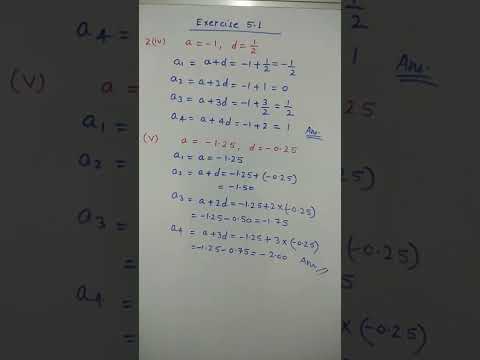 Exercise 5.1
2(iv) a = -1, d = 1/2
a₁ = a+d = -1 + 1/2 = -1/2
a₂ = a+2d = -1+1 = 0
a₃ = a+3d = -1+3/2 = 1/2
a₄ = a+4d = -1+2 = 1 Ans.
(V) a = -1.25, d = -0.25
a₁ = a = -1.25
a₂ = a+d = -1.25+(-0.25)
= -1.50
a₃ = a+2d = -1.25+2×(-0.25)
= -1.25-0.50 = -1.75
a₄ = a+3d = -1.25+3×(-0.25)
= -1.25-0.75 = -2.00 Ans.